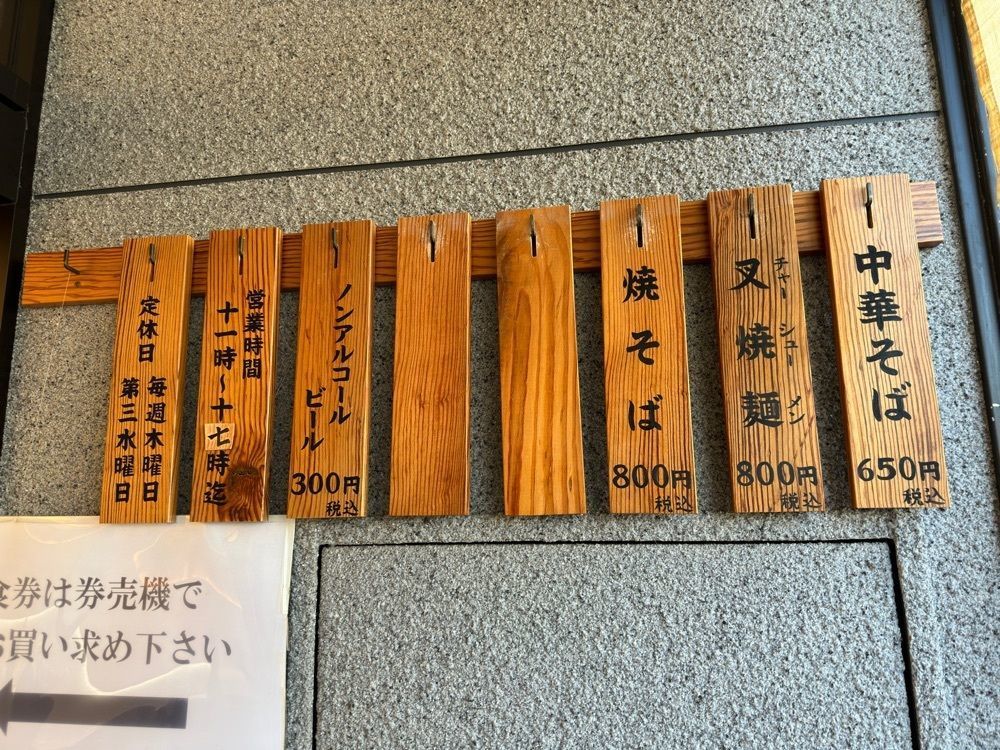 中華そば
650円
税込
叉焼麺
チャーシューメン
800円
税込
焼そば
800円
税込
ノンアルコール
ビール
300円
税込
営業時間
十一時～十七時迄
定休日
毎週木曜日
第三水曜日
食券は券売機で
お買い求め下さい